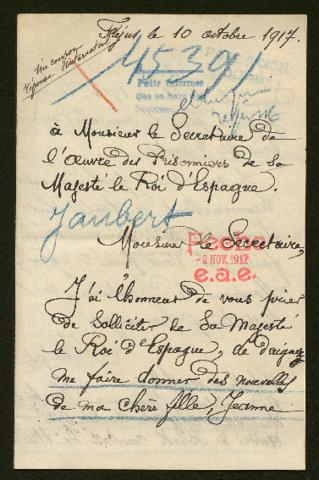 Fréjus le 10 octobre 1917.
Un coupon
réponse international
4539
Pedir informes
à Monsieur le Secrétaire de
l'Œuvre des Prisonniers de Sa
Majesté le Roi d'Espagne.
Jaubert
Monsieur le Secrétaire,
Fecha
-2 NOV. 1917
e.a.e.
J'ai l'honneur de vous prier
de solliciter de Sa Majesté
le Roi d'Espagne, de daigner
me faire donner des nouvelles
de ma chère fille, Jeanne